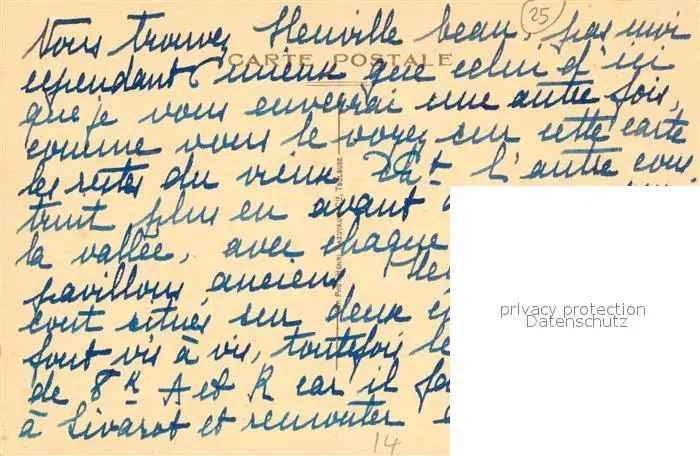 25
Vous trouvez Heuville beau, pas moi
CARTE POSTALE
cependant mieux que celui d'ici
que je vous enverrai une autre fois,
comme vous le voyez sur cette carte
les restes du vieux Cht l'autre cons
truit plus en avant
la vallée, avec chaque
pavillons anciens
sont situés sur deux
font vis à vis, toutefois le
de 8 K A et R car il fa
à Livarot et remonter
privacy protection
Datenschutz
14